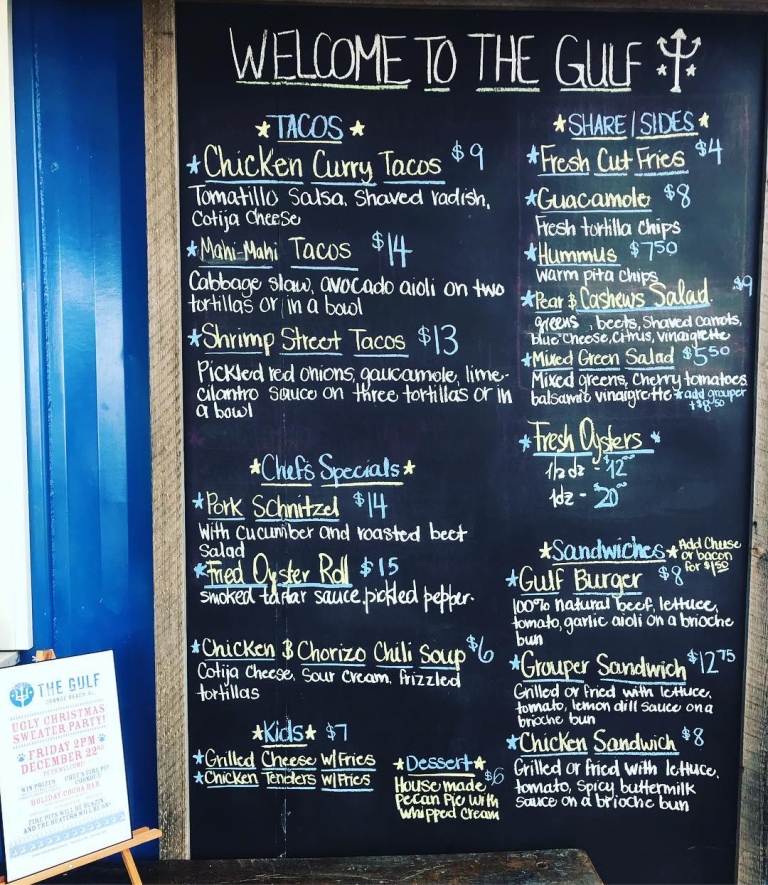 WELCOME TO THE GULF
TACOS
Chicken Curry Tacos $9
Tomatillo Salsa, Shaved radish,
Cotija Cheese
Mahi-Mahi Tacos $14
Cabbage slaw, avocado aioli on two
tortillas or in a bowl
Shrimp Street Tacos $13
Pickled red onions, gaucamole, lime-
cilantro sauce on three tortillas or in
a bowl
Chef's Specials
Pork Schnitzel $14
With cucumber and roasted beet
Salad
Fried Oyster Roll $15
smoked tartar sauce, pickled pepper.
Chicken & Chorizo Chili Soup $6
Cotija Cheese, Sour Cream, frizzled
tortillas
Kids $7
Grilled Cheese w/Fries
Chicken Tenders w/Fries
Dessert
$6
House made
Pecan Pie with
Whipped Cream
SHARE/SIDES
Fresh Cut Fries $4
Guacamole $8
Fresh tortilla chips
Hummus $7.50
warm pita chips
Pear & Cashews Salad $9
greens, beets, Shaved carrots,
blue cheese, citrus, vinaigrette
Mixed Green Salad $5.50
Mixed greens, Cherry tomatoes
balsamic vinaigrette *add grouper
+$8.50
Fresh Oysters
1/2 dz - $12.00
1dz - $20.00
Sandwiches
*Add Cheese
or bacon
for $1.50
Gulf Burger $8
100% natural beef, lettuce,
tomato, garlic aioli on a brioche
bun
Grouper Sandwich $12.75
Grilled or fried with lettuce,
tomato, lemon dill sauce on a
brioche bun
Chicken Sandwich $8
Grilled or fried with lettuce,
tomato, spicy buttermilk
sauce on a brioche bun
THE GULF
ORANGE BEACH, AL
UGLY CHRISTMAS
SWEATER PARTY!
FRIDAY 2PM
DECEMBER 22ND
PETS WELCOME!
WIN PRIZES
HOLIDAY COCOA BAR
FIRE PITS WILL BE BLAZIN'
AND THE HEATERS WILL BE ON!